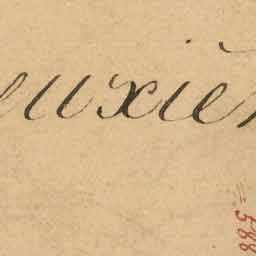 euxièm
588